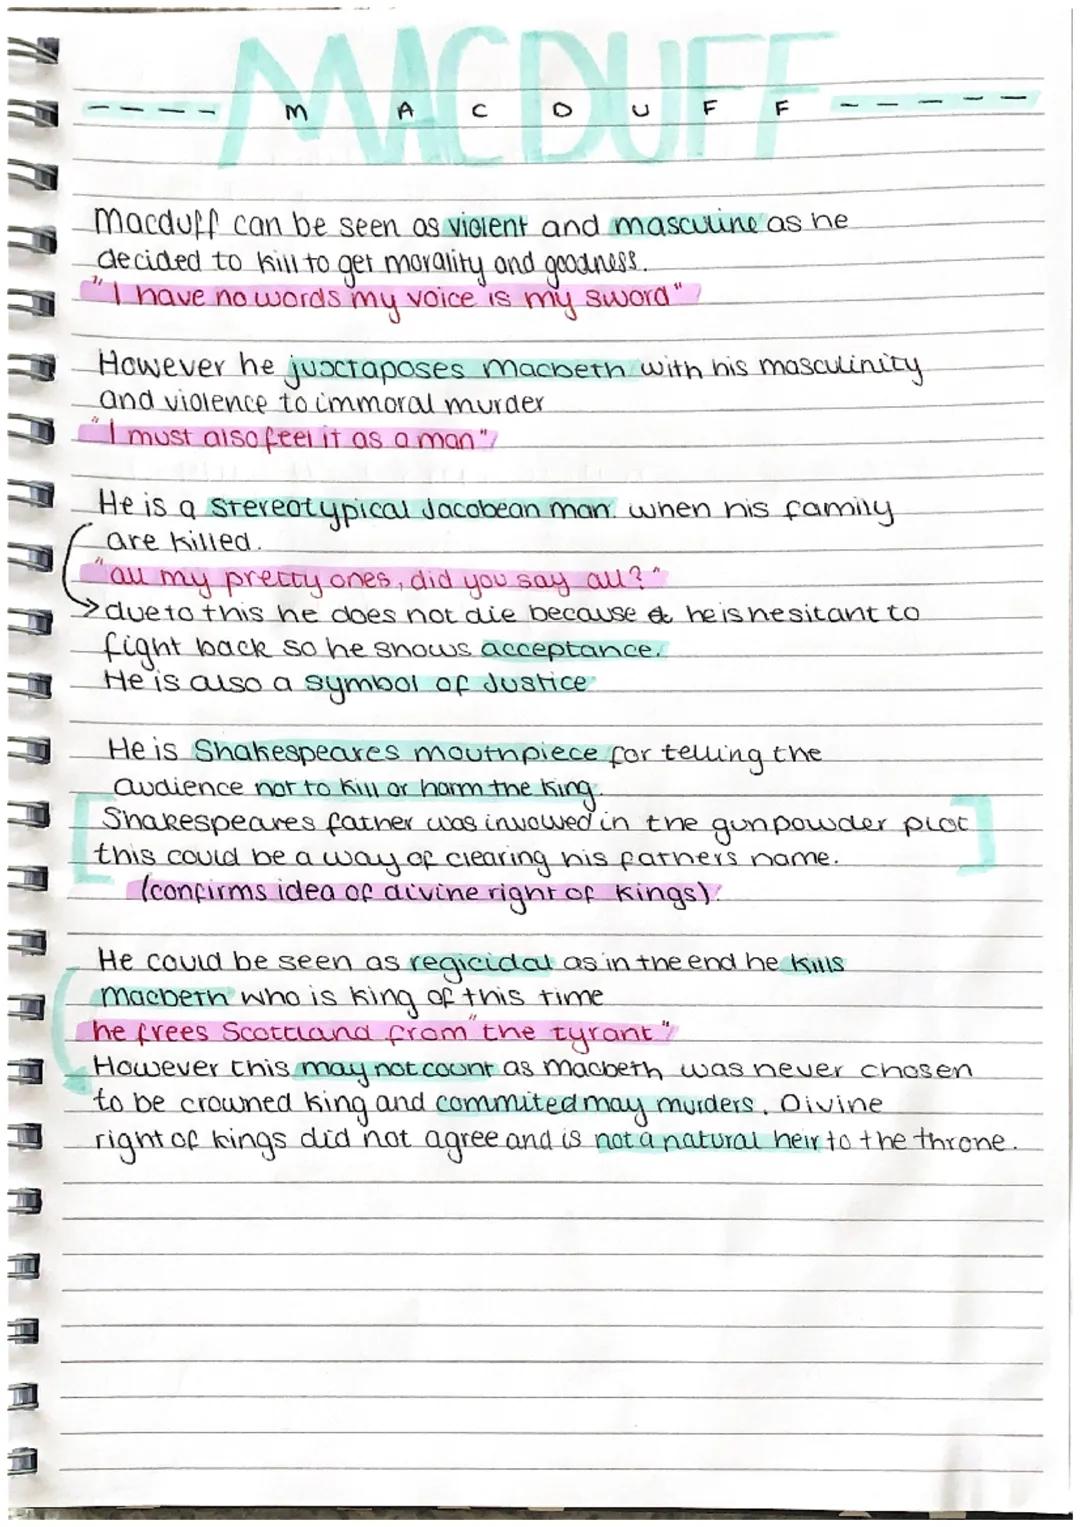 MACDUFF
---- M A C D U F F -----
Macduff can be seen as violent and masculine as he
decided to kill to get morality and goodness.
"I have no words my voice is my sword"
However he juxtaposes Macbeth with his masculinity
and violence to immoral murder
"I must also feel it as a man"
He is a stereotypical Jacobean man. when his family
are killed.
"all my pretty ones, did you say all?"
due to this he does not die because he is hesitant to
fight back so he shows acceptance.
He is also a symbol of Justice
He is Shakespeares mouthpiece for telling the
audience not to kill or harm the king.
[Shakespeares father was involved in the gunpowder plot
this could be a way of clearing his fathers name.]
(confirms idea of divine right of kings).
He could be seen as regicidal as in the end he kills
Macbeth who is king of this time
he frees Scottland from "the tyrant"
However this may not count as Macbeth was never chosen
to be crowned king and commited may murders. Divine
right of kings did not agree and is not a natural heir to the throne.